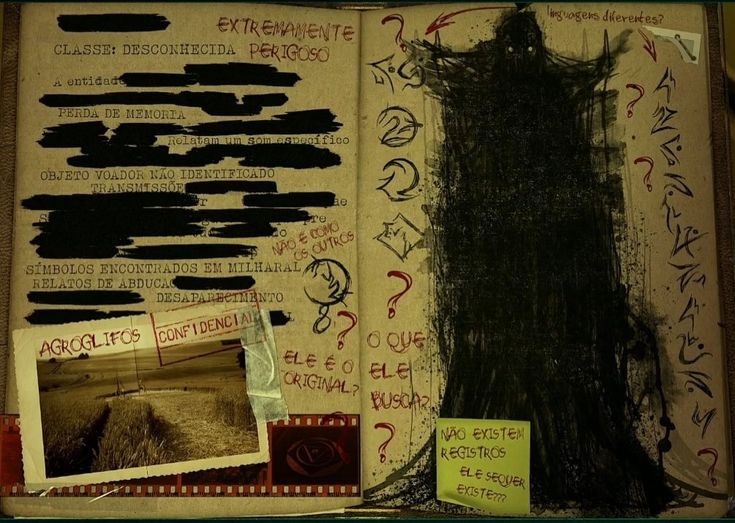 EXTREMAMENTE
PERIGOSO
CLASSE: DESCONHECIDA
A entidade
PERDA DE MEMORIA
Relatam um som específico
OBJETO VOADOR NÃO IDENTIFICADO
TRANSMISSÕE
NÃO É COMO
OS OUTROS
SÍMBOLOS ENCONTRADOS EM MILHARAL
RELATOS DE ABDUCA
DESAPARECIMENTO
AGROGLIFOS
CONFIDENCIAL
?
ELE É O
ORIGINAL?
linguagens diferentes?
?
?
?
?
?
?
O QUE
ELE
BUSCA?
?
?
NÃO EXISTEM
REGISTROS
ELE SEQUER
EXISTE???